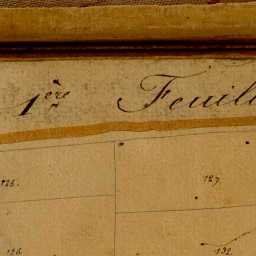 1ère Feuil
126. 127
132.